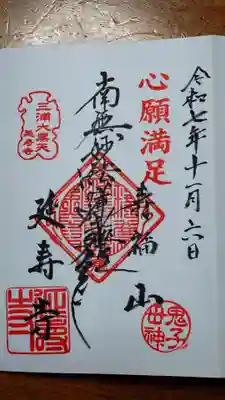 令和七年十一月六日
心願満足
寿福山
南無妙法蓮華経
延寿寺
三浦大黒天
延寿寺
鬼子母神